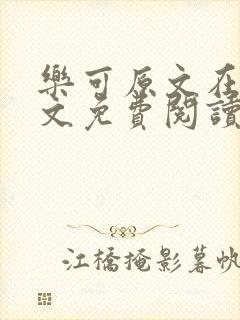 樂可原文在
文免費閱讀
江橋掩影暮帆